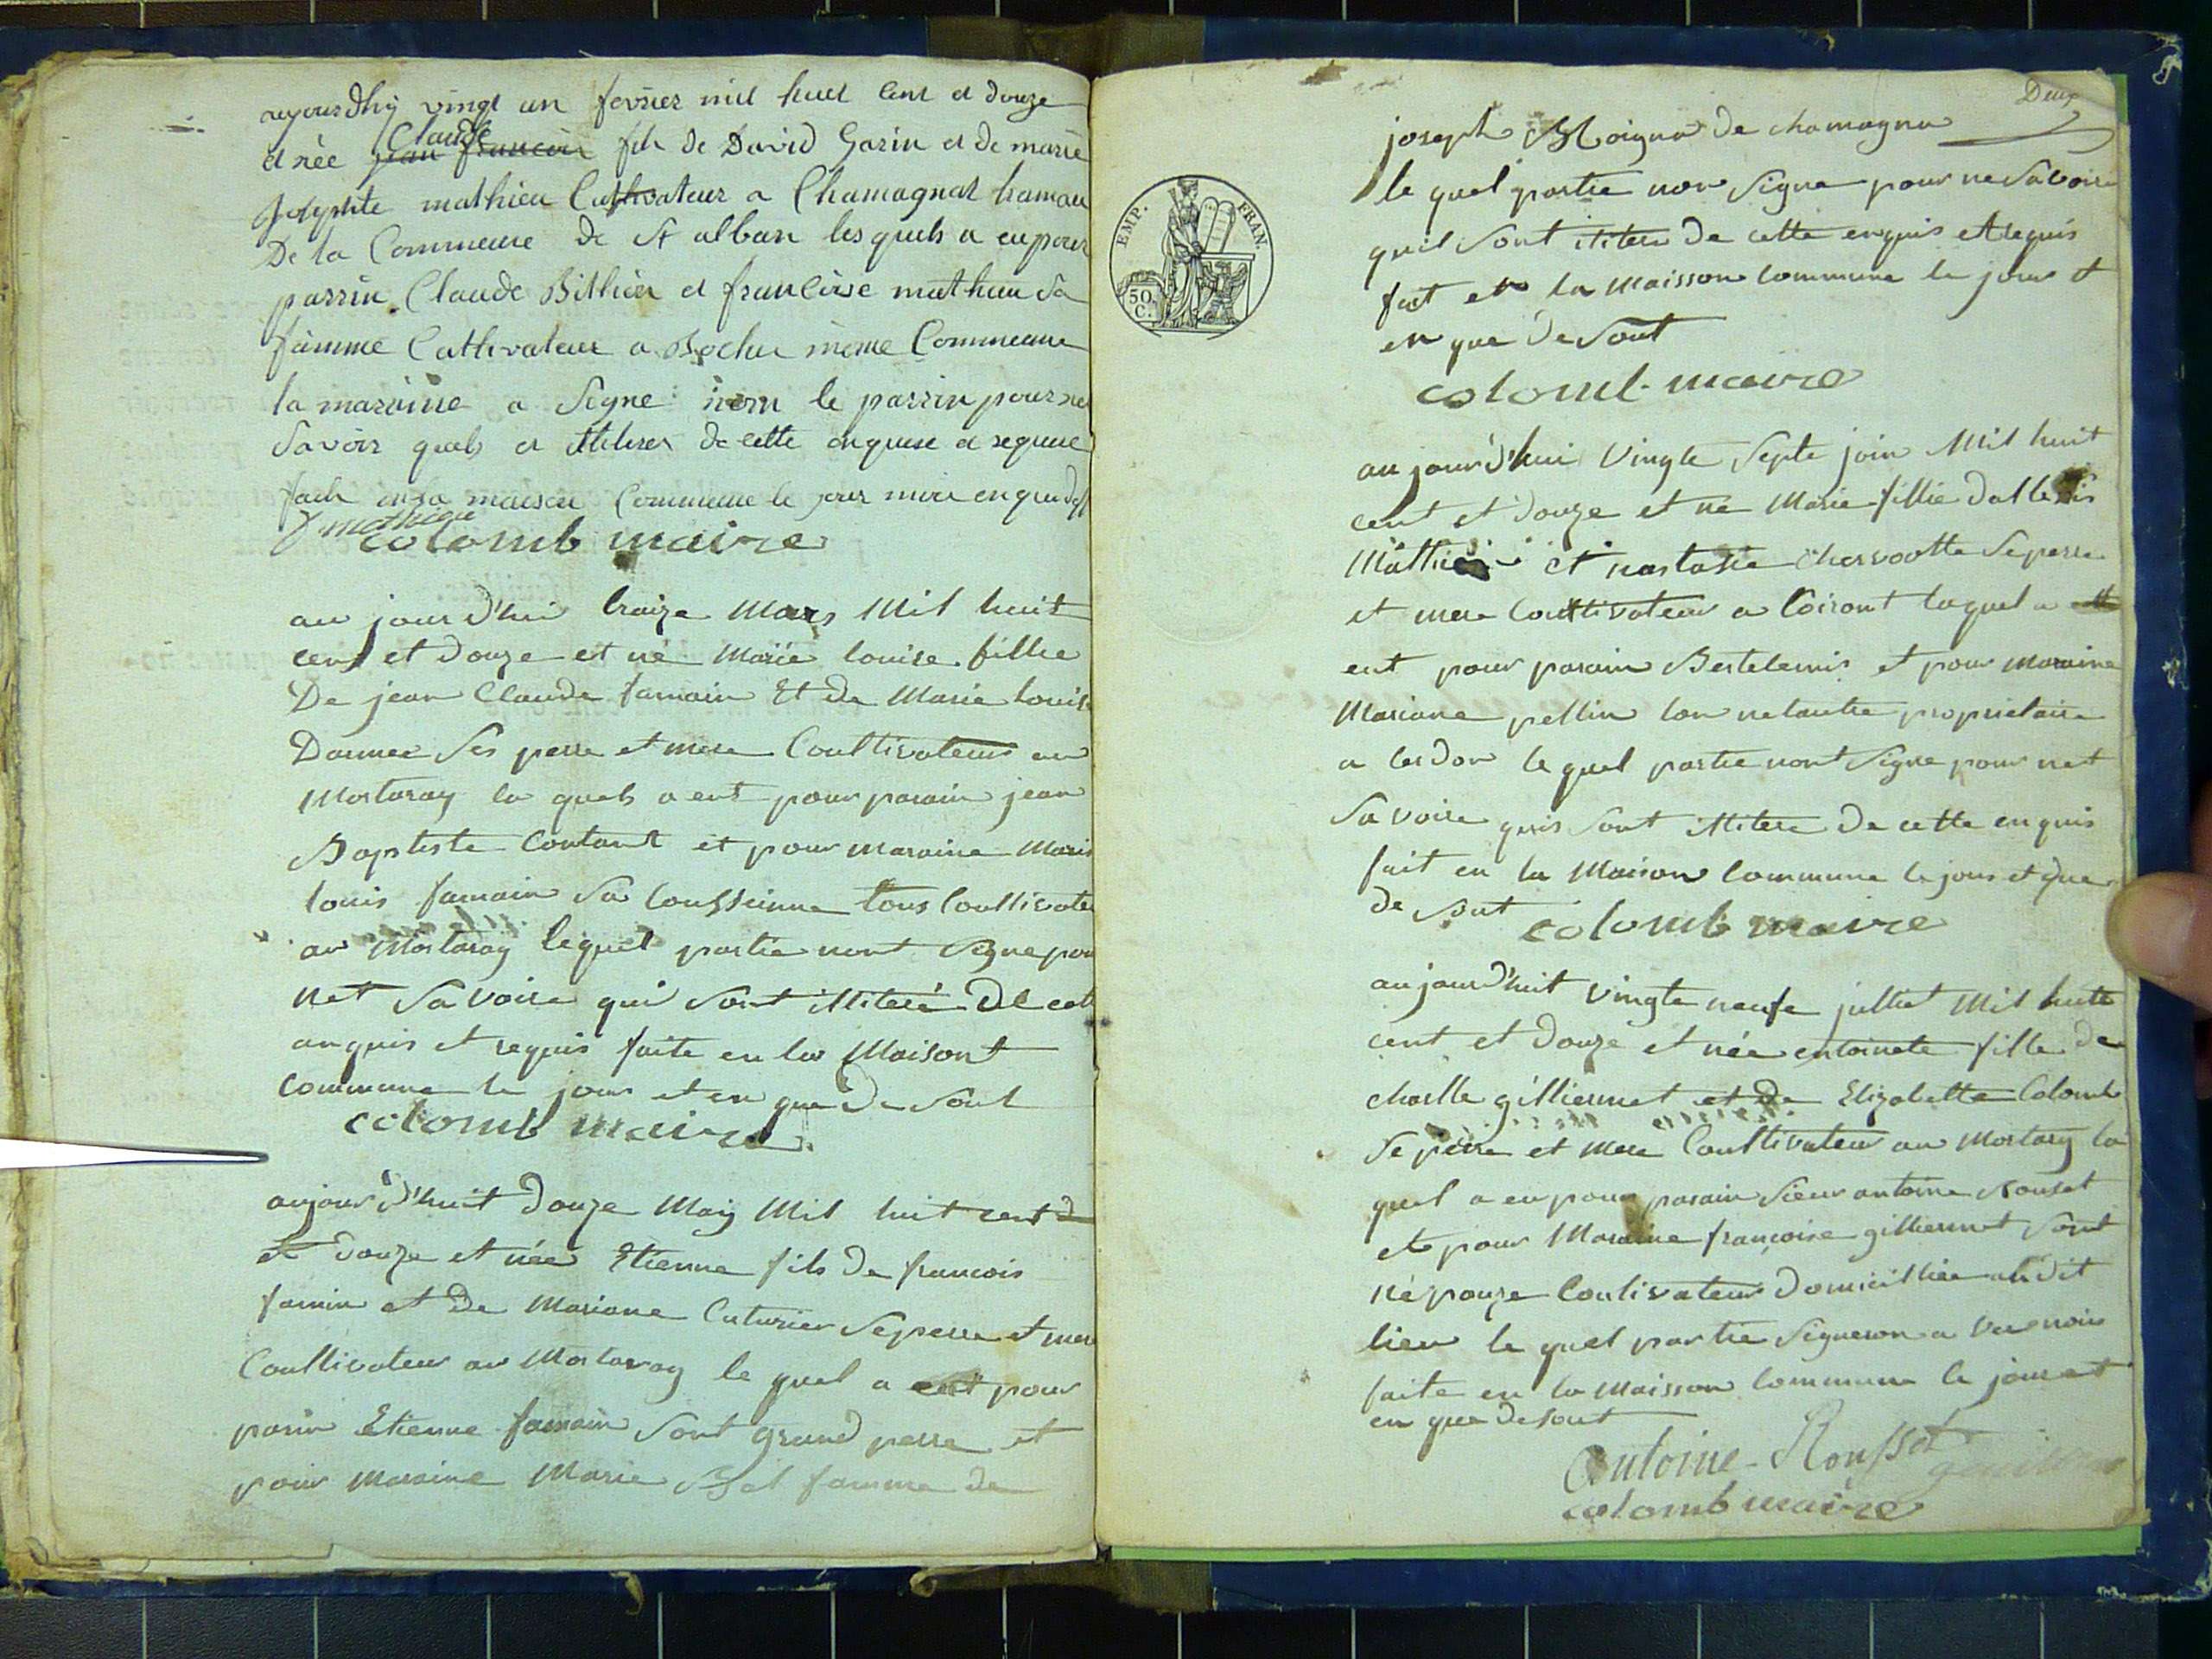 aujourdhÿ vingt un fevrier mil huit cent et douze
et née Claude jean francois fils de David Garin et de marie
Josephte mathieu Cultivateur a Chamagnat hamau
De la Commeune de St alban les quels a eu pour
parrin Claude Billien et francoise mathieu Sa
famme Cultivateur a Bochu meme Commeune
la marainne a Signe non le parrin pour ne
Savoir quels et illiteres de cette enquise et requise
fait en la maison Commeune le jour mois en que des
f mathieu
colomb maire
au jourd'hui traize Mars Mil huit
cent et douze et né Marie louise fillie
De jean Claude famain Et de Marie louise
Darmee Ses perre et mere Coultivateur au
Mortaray la quels a eut pour parain jean
Baptiste Contant et pour maraine Marie
louis famain Sa Cousseinne tous Coultivate
au Mortaray lequel partie nont Signe pou
net Savoire qui Sont illiteré De cet
anquis et requis faite en la Maisont
commune le jour et en que De Sout
colomb maire
aujourd'huit Douze May Mil huit cent d
et douze et née Etienne fils De francois
famin et De Mariane Cuturier Se perre et mere
Coultivateur au Mortaray le quel a eut pour
parin Etienne famain Sont grand perre et
pour maraine Marie famme de
Deux
EMP. FRAN.
50 C.
joseph Moigna de chamagna
le quel partie non Signe pour ne Savoire
quil Sont iliteré De cette enquis et requis
fait en la Maisson commune le jour et
en que De Sout
colomb maire
au jourd'hui Vingte Septe join Mil huit
cent et Douze et né Marie fillie Dallexis
Mathieu et nastasie Chervootte Se perre
et mere Coultivateur a Coiront laquel a
eut pour parain Bertelemis et pour Maraine
Mariane pellin lon netautre proprietaire
a lesdon le quel partie nont Signe pour net
Savoire quis Sont illitere De cette enquis
fait en la Maison Commune le jour et que
de Sout
colomb maire
aujourd'huit Vingte neufe julliet Mil huite
cent et Douze et née entoinete fille de
charlle gilliermet et De Elizabette Colomb
Se père et Mere Coultivateur au Mortary la
quel a eu pour parain Sieur antoine Rousset
et pour Maraine françoise gilliermet Sont
népouze Coulivateur Domicilliée audit
lieu le quel partie Signeron a
faite en la Maisson commune le jour et
en que Desout
Antoine Rousset
colomb maire